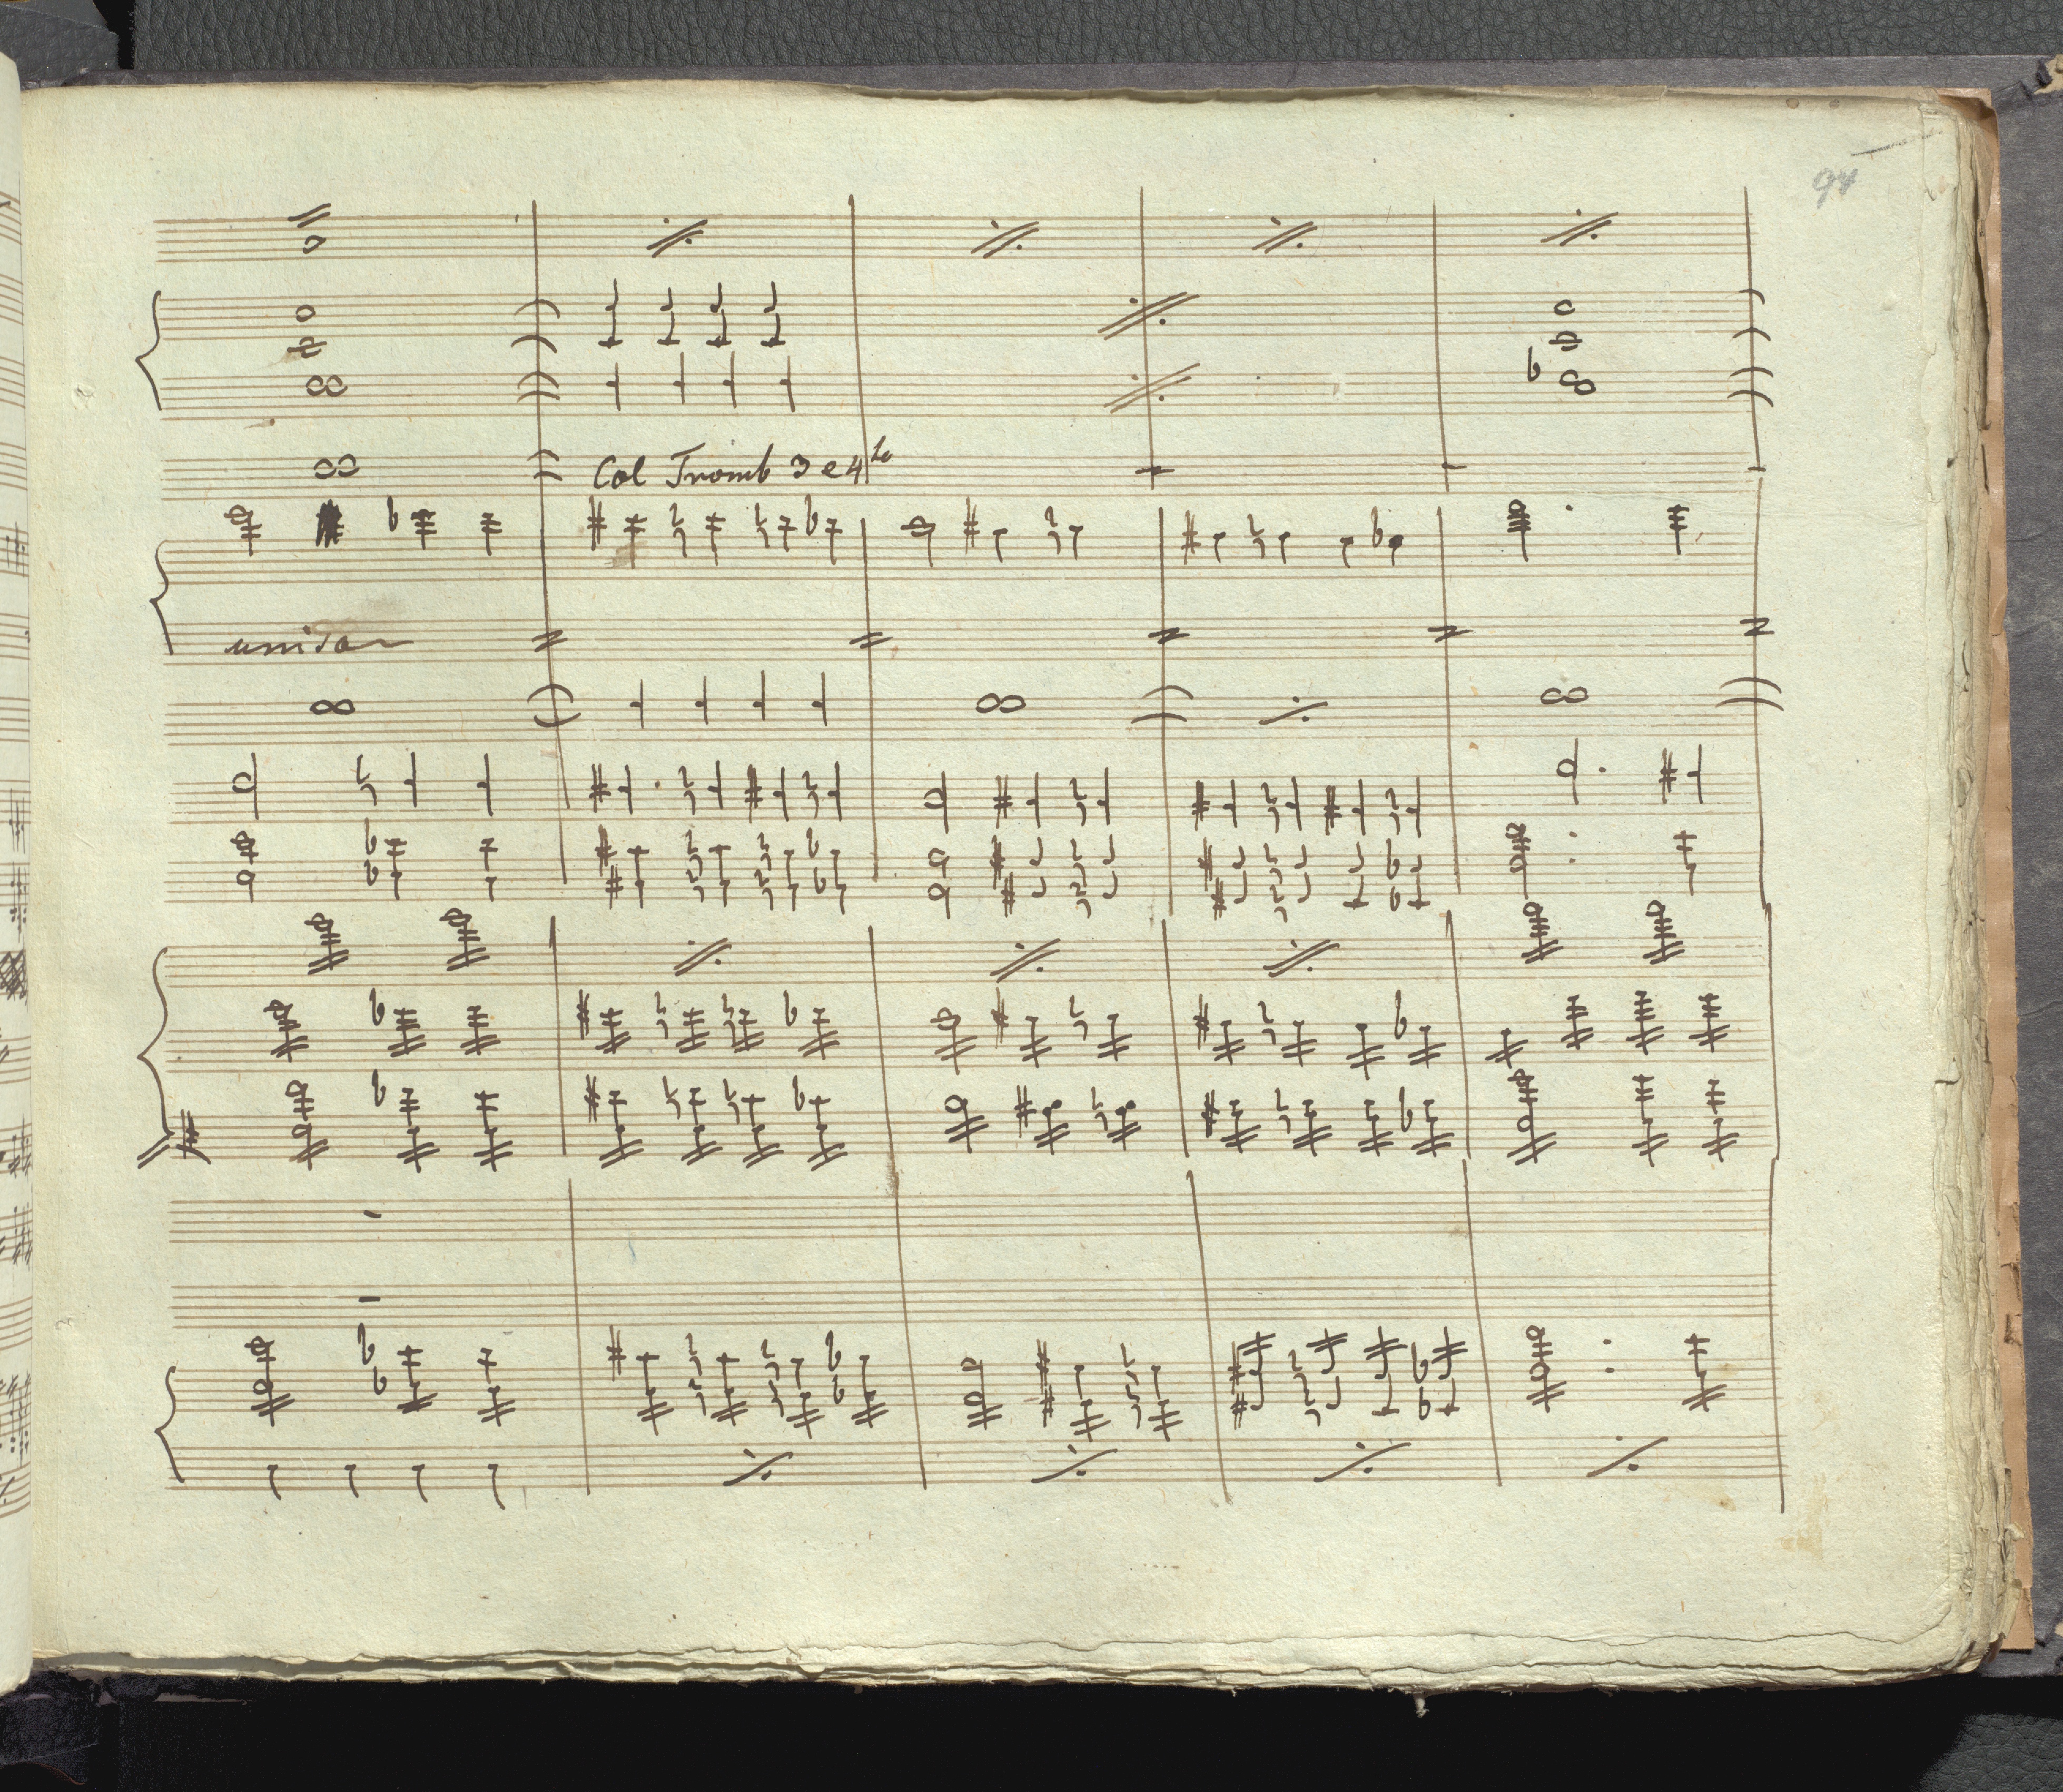 94
Col Tromb 3 e 4to
unison